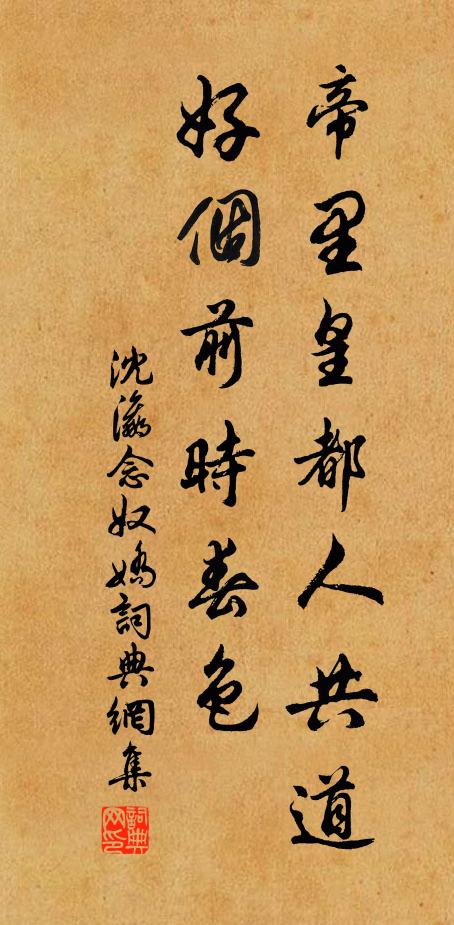 帝里皇都人共道
好個前時春色
沈瀛念奴嬌詞典網集
詞典網印